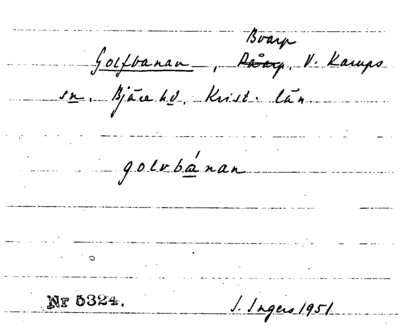 Bvarp
Golfbanan, V. Karups
sn. Bjäre hd. Krist. län
golvbánan
Nr 5324.
I. Ingers 1951